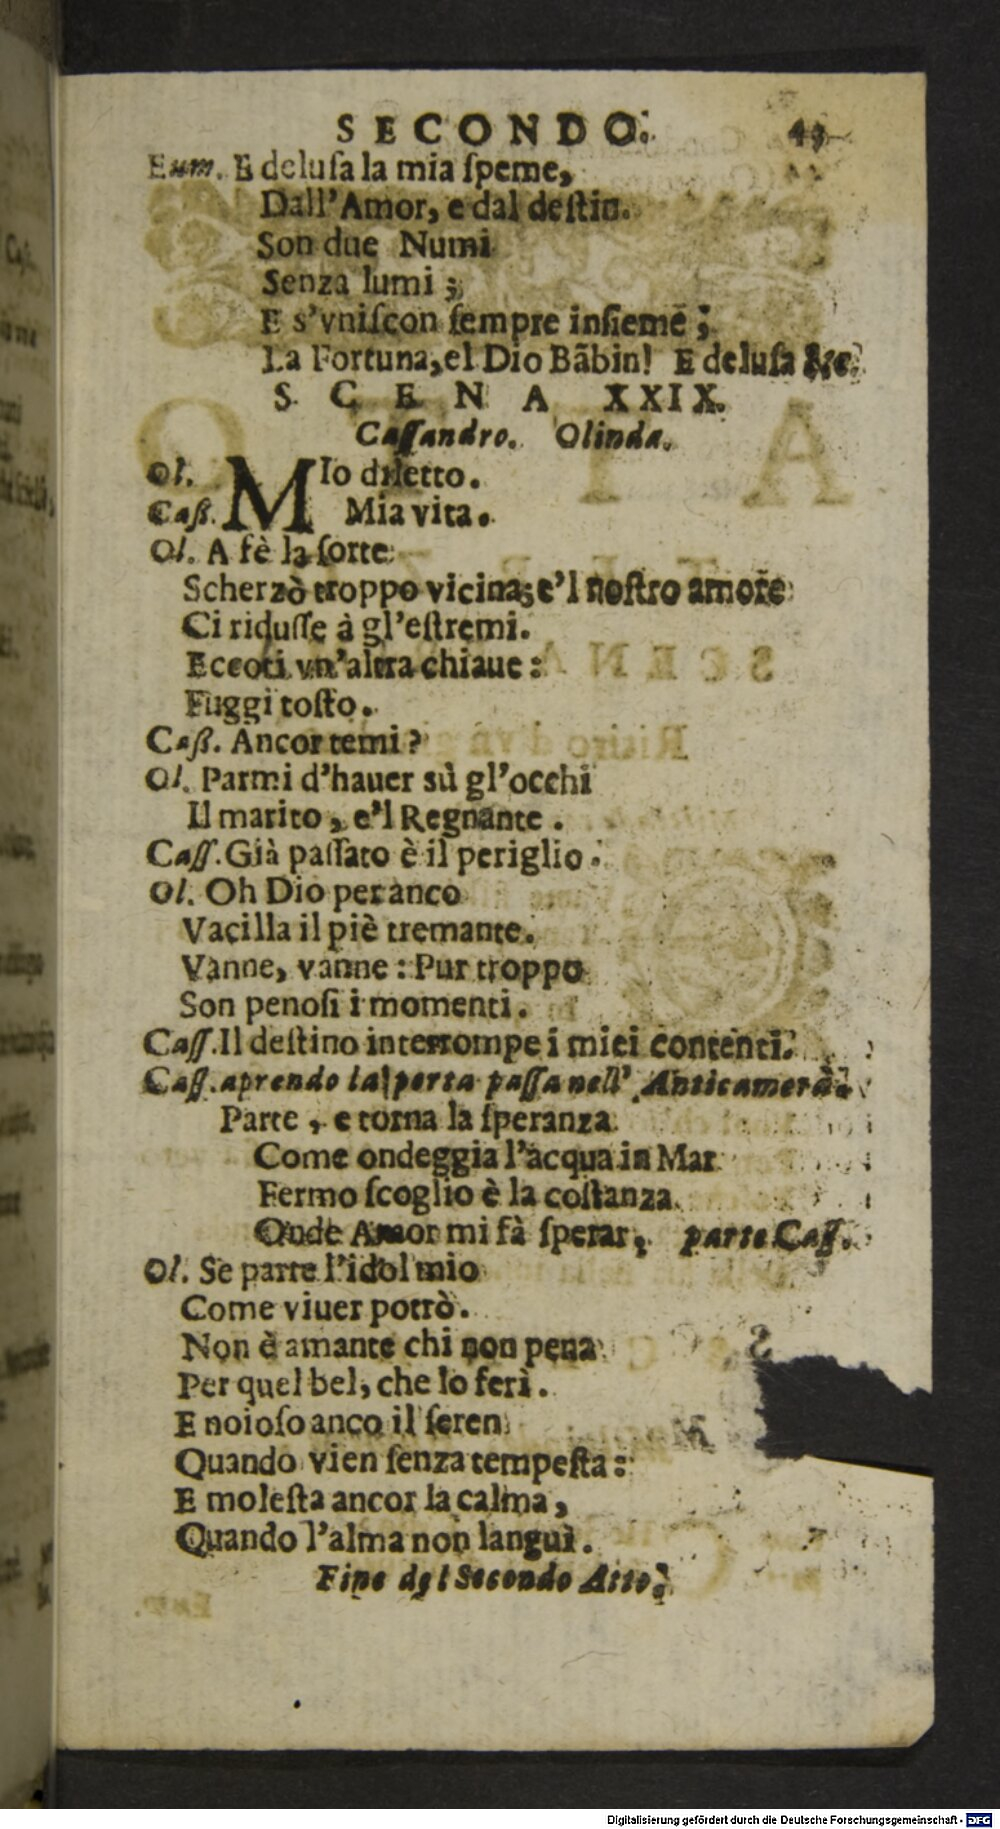 SECONDO. 43
Eum. E delusa la mia speme,
Dall'Amor, e dal destin.
Son due Numi
Senza lumi;
E s'vniſcon ſempre inſieme;
La Fortuna, el Dio Bãbin! E deluſa &c.
SCENA XXIX.
Caſſandro. Olinda.
Ol. MIo diletto.
Caſſ. Mia vita.
Ol. A fè la ſorte
Scherzò troppo vicina; e'l noſtro amore
Ci riduſſe à gl'eſtremi.
Eccoti vn'altra chiaue:
Fuggi toſto.
Caſſ. Ancor temi?
Ol. Parmi d'hauer sù gl'occhi
Il marito, e'l Regnante.
Caſſ. Già paſſato è il periglio.
Ol. Oh Dio per anco
Vacilla il piè tremante.
Vanne, vanne: Pur troppo
Son penoſi i momenti.
Caſſ. Il deſtino interrompe i miei contenti.
Caſſ. aprendo la porta paſſa nell' Anticamera.
Parte, e torna la ſperanza
Come ondeggia l'acqua in Mar
Fermo ſcoglio è la coſtanza
Onde Amor mi fà ſperar, parte Caſſ.
Ol. Se parte l'idol mio
Come viuer potrò.
Non è amante chi non pena
Per quel bel, che lo ferì.
E noioſo anco il ſeren
Quando vien ſenza tempeſta:
E moleſta ancor la calma,
Quando l'alma non languì.
Fine del Secondo Atto.
Digitalisierung gefördert durch die Deutsche Forschungsgemeinschaft - DFG